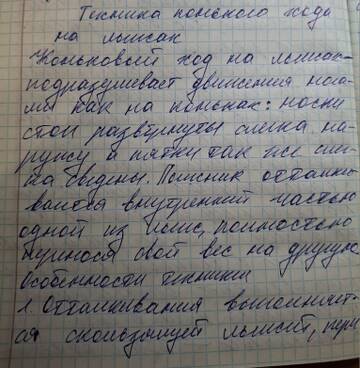 Техника конького хода
на лыжах
Коньковый ход на лыжах
подразумевает движения нога-
ми как на коньках: носки
стоп развёрнуты слегка на-
ружу а пятки так же слег-
ка сведены. Лыжник отталки-
вается внутренний частью
одной из лыж, полностью
перенося свой вес на другую
Особенности техники
1. Отталкивания выполняет-
ся скользящей лыжей,